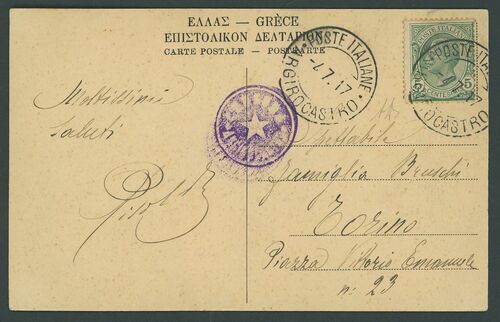 ΕΛΛΑΣ — GRÈCE
ΕΠΙΣΤΟΛΙΚΟΝ ΔΕΛΤΑΡΙΟΝ
CARTE POSTALE — POSTKARTE
POSTE ITALIANE
4.7.17
ARGIROCASTRO
POSTE ITALIANE
CENTES
5
Moltissimi
saluti
Spettabile
Famiglia Bruschi
Torino
Piazza Vittorio Emanuele
n. 23